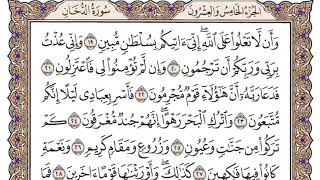 الجزء الخامس والعشرون سورة الدخان
وَأَن لَّا تَعْلُوا۟ عَلَى ٱللَّهِ إِنِّىٓ ءَاتِيكُم بِسُلْطَٰنٍ مُّبِينٍ ١٩ وَإِنِّى عُذْتُ
بِرَبِّى وَرَبِّكُمْ أَن تَرْجُمُونِ ٢٠ وَإِن لَّمْ تُؤْمِنُوا۟ لِى فَٱعْتَزِلُونِ ٢١
فَدَعَا رَبَّهُۥٓ أَنَّ هَٰٓؤُلَآءِ قَوْمٌ مُّجْرِمُونَ ٢٢ فَأَسْرِ بِعِبَادِى لَيْلًا إِنَّكُم
مُّتَّبَعُونَ ٢٣ وَٱتْرُكِ ٱلْبَحْرَ رَهْوًا إِنَّهُمْ جُندٌ مُّغْرَقُونَ ٢٤ كَمْ
تَرَكُوا۟ مِن جَنَّٰتٍ وَعُيُونٍ ٢٥ وَزُرُوعٍ وَمَقَامٍ كَرِيمٍ ٢٦ وَنَعْمَةٍ
كَانُوا۟ فِيهَا فَٰكِهِينَ ٢٧ كَذَٰلِكَ وَأَوْرَثْنَٰهَا قَوْمًا ءَاخَرِينَ ٢٨